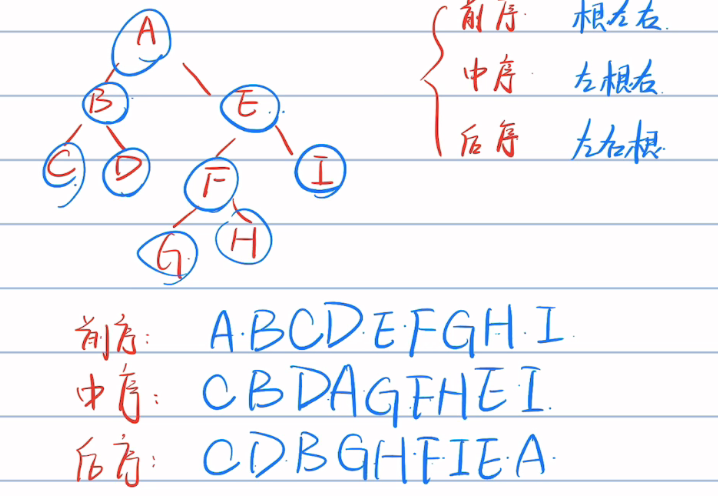 A
B E
C D F I
G H
前序 根左右
中序 左根右
后序 左右根
前序: A B C D E F G H I
中序: C B D A G F H E I
后序: C D B G H F I E A